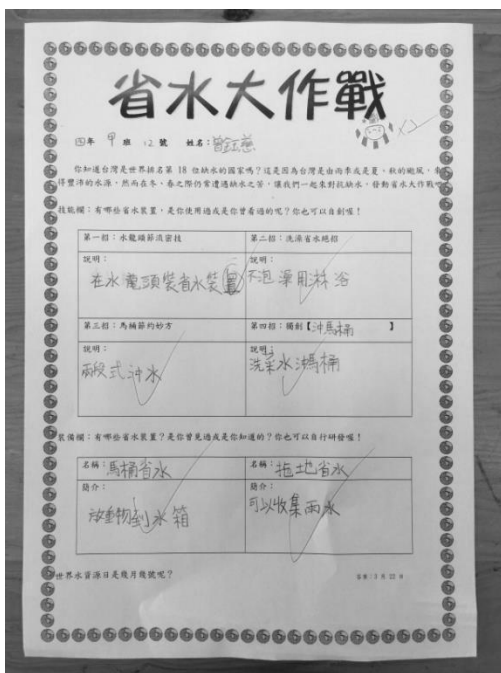 省水大作戰
四年 甲 班 12 號 姓名：曾鈺慈
X2
你知道台灣是世界排名第 18 位缺水的國家嗎？這是因為台灣是由雨季或是夏、秋的颱風，來
得豐沛的水源，然而在冬、春之際仍常遭遇缺水之苦，讓我們一起來對抗缺水，發動省水大作戰吧
技能欄：有哪些省水裝置，是你使用過或是你曾看過的呢？你也可以自創喔！
第一招：水龍頭節流密技
第二招：洗澡省水絕招
說明：
在水龍頭裝省水裝置
說明：
不泡澡用淋浴
第三招：馬桶節約妙方
第四招：獨創【沖馬桶】
說明：
兩段式沖水
說明：
洗菜水沖馬桶
裝備欄：有哪些省水裝置？是你曾見過或是你知道的？你也可以自行研發喔！
名稱：馬桶省水
名稱：拖地省水
簡介：
放重物到水箱
簡介：
可以收集雨水
世界水資源日是幾月幾號呢？
答案：3 月 22 日